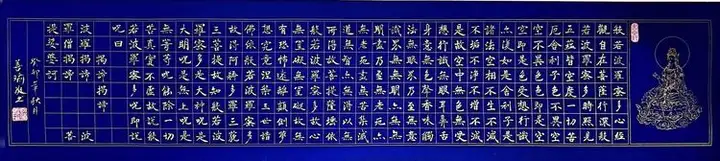 般若波羅蜜多心經
觀自在菩薩行深般
若波羅蜜多時照見
五蘊皆空度一切苦
厄舍利子色不異空
空不異色色即是空
空即是色受想行識
亦復如是舍利子是
諸法空相不生不滅
不垢不淨不增不減
是故空中無色無受
想行識無眼耳鼻舌
身意無色聲香味觸
法無眼界乃至無意
識界無無明亦無無
明盡乃至無老死亦
無老死盡無苦集滅
道無智亦無得以無
所得故菩提薩埵依
般若波羅蜜多故心
無罣礙無罣礙故無
有恐怖遠離顛倒夢
想究竟涅槃三世諸
佛依般若波羅蜜多
故得阿耨多羅三藐
三菩提故知般若波
羅蜜多是大神呪是
大明呪是無上呪是
無等等呪能除一切
苦真實不虛故說般
若波羅蜜多呪即說
呪曰
揭諦揭諦
波羅揭諦 波
羅僧揭諦 菩
提娑婆訶
癸卯年秋月